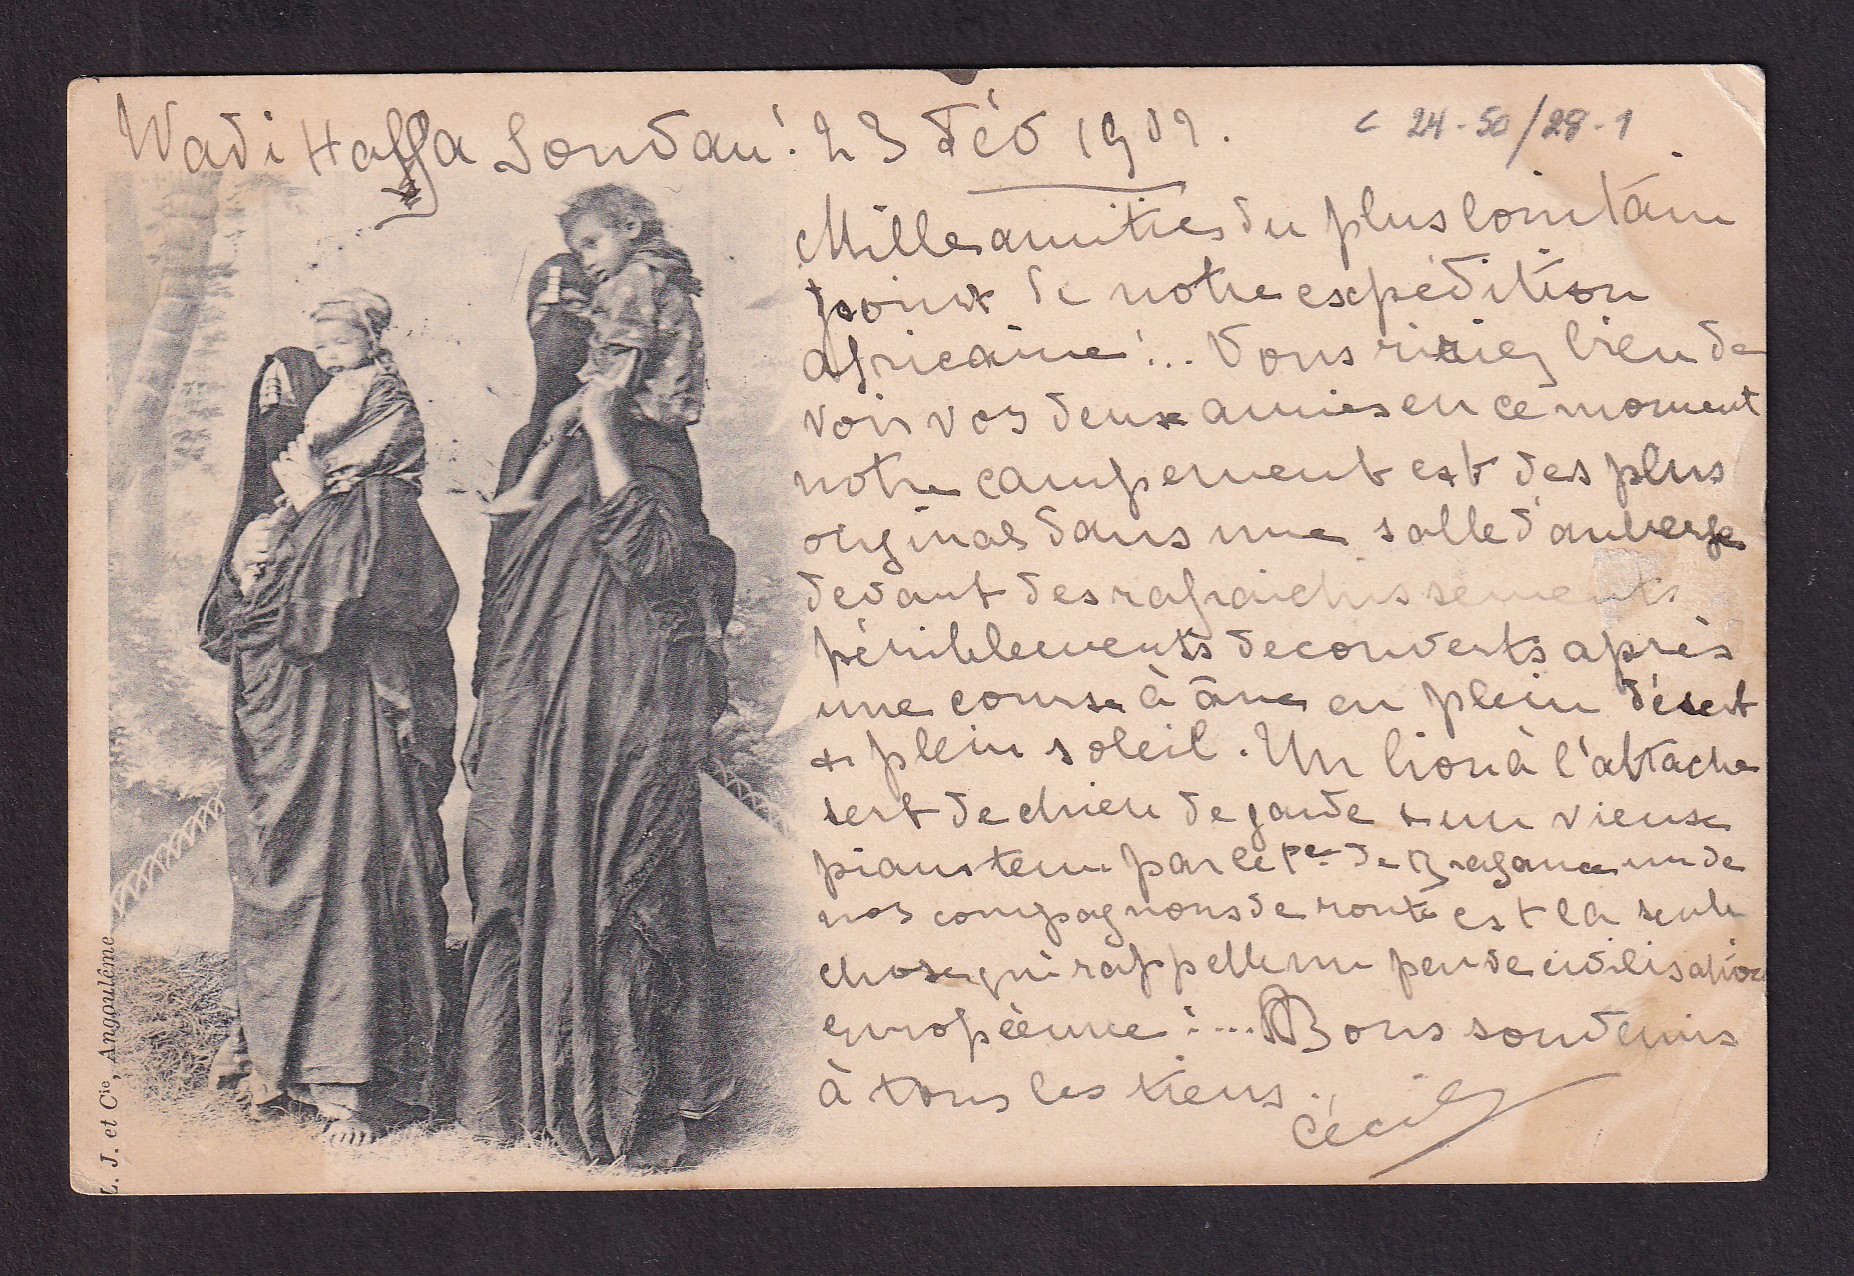 Wadi Halfa Soudan! 23 Fév 1902.
c 24-50/28-1
Milles amitiés du plus lointain
point de notre expédition
africaine!.. Vous ririez bien de
voir vos deux amies en ce moment
notre campement est des plus
original dans une salle d'auberge
devant des rafraichissements
péniblements decouverts après
une course à âne en plein désert
+ plein soleil. Un lion à l'attache
sert de chien de garde + un vieux
piano tenu par le Pce de Bragance un de
nos compagnons de route est la seule
chose qui rappelle un peu de civilisation
européenne!... Bons souvenirs
à tous les tiens.
Cécile
L. J. et Cie, Angoulême